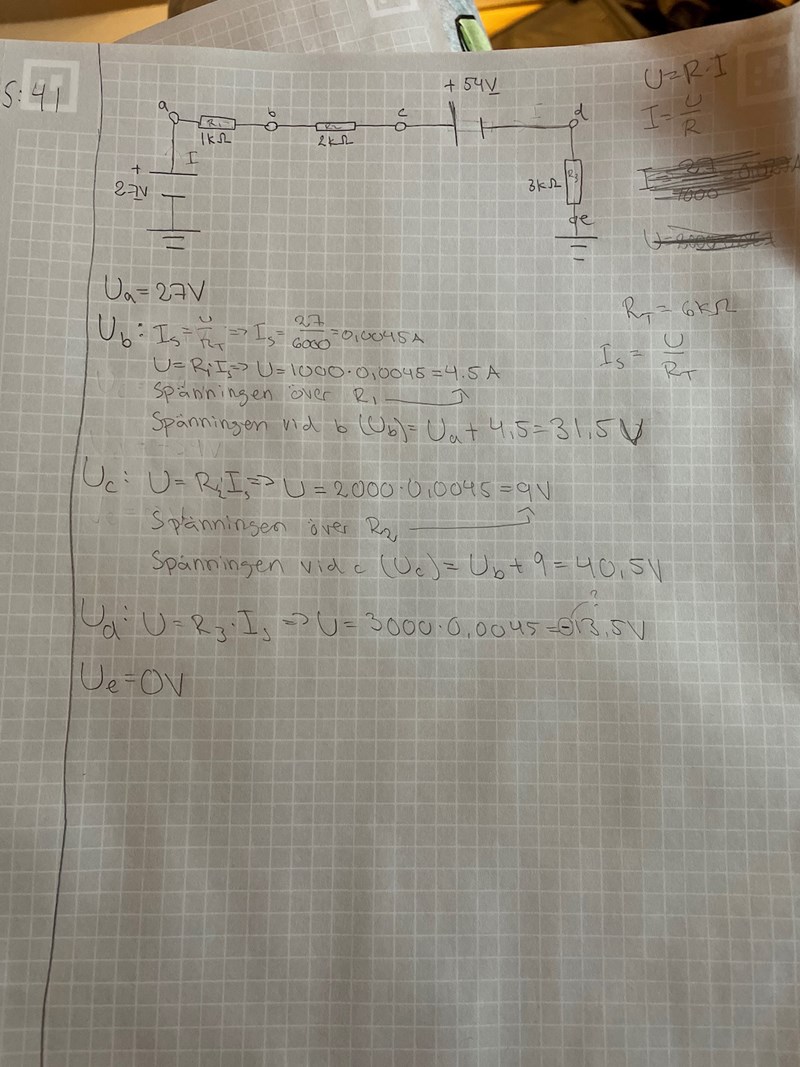 S:41
+ 54V
U=R·I
I=U/R
a
R1
b
R2
c
I
d
1kΩ
2kΩ
I
+
27V
3kΩ
R3
e
Ua=27V
RT=6kΩ
Ub: Is=U/RT => Is=27/6000=0,0045A
Is=U/RT
U=R1Is=>U=1000·0,0045=4.5A
Spänningen över R1
Spänningen vid b (Ub)=Ua+4,5=31,5V
Uc: U=R2Is=>U=2000·0,0045=9V
Spänningen över R2
Spänningen vid c (Uc)=Ub+9=40,5V
?
Ud: U=R3·Is=>U=3000·0,0045=-13,5V
Ue=0V